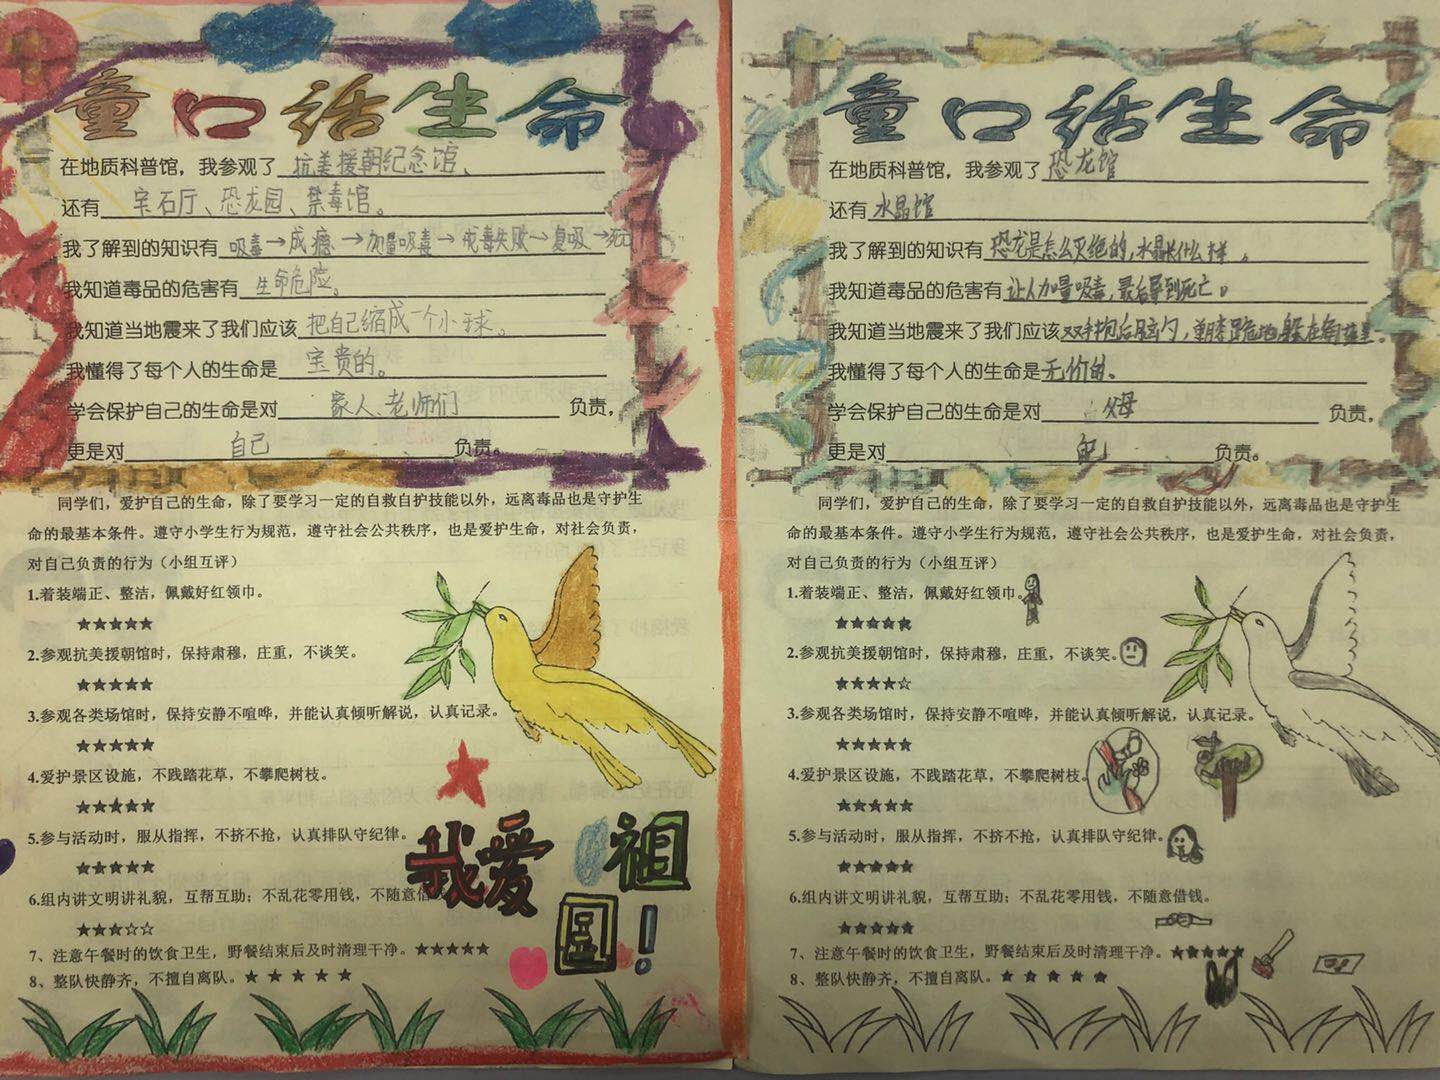 童口话生命
在地质科普馆，我参观了 抗美援朝纪念馆、
还有 宝石厅、恐龙园、禁毒馆。
我了解到的知识有 吸毒→成瘾→加量吸毒→戒毒失败→复吸→死
我知道毒品的危害有 生命危险。
我知道当地震来了我们应该 把自己缩成一个小球。
我懂得了每个人的生命是 宝贵的。
学会保护自己的生命是对 家人、老师们 负责，
更是对 自己 负责。
同学们，爱护自己的生命，除了要学习一定的自救自护技能以外，远离毒品也是守护生
命的最基本条件。遵守小学生行为规范，遵守社会公共秩序，也是爱护生命，对社会负责，
对自己负责的行为（小组互评）
1.着装端正、整洁，佩戴好红领巾。
★★★★★
2.参观抗美援朝馆时，保持肃穆，庄重，不谈笑。
★★★★★
3.参观各类场馆时，保持安静不喧哗，并能认真倾听解说，认真记录。
★★★★★
4.爱护景区设施，不践踏花草，不攀爬树枝。
★★★★★
5.参与活动时，服从指挥，不挤不抢，认真排队守纪律。
★★★★★
6.组内讲文明讲礼貌，互帮互助；不乱花零用钱，不随意借
★★★☆☆
7、注意午餐时的饮食卫生，野餐结束后及时清理干净。★★★★★
8、整队快静齐，不擅自离队。★ ★ ★ ★ ★
我爱祖
国！
童口话生命
在地质科普馆，我参观了 恐龙馆
还有 水晶馆
我了解到的知识有 恐龙是怎么灭绝的，水晶长什么样。
我知道毒品的危害有 让人加量吸毒，最后导到死亡。
我知道当地震来了我们应该 双手抱后脑勺，躲在角落里。
我懂得了每个人的生命是 无价的、
学会保护自己的生命是对 父母 负责，
更是对 自己 负责。
同学们，爱护自己的生命，除了要学习一定的自救自护技能以外，远离毒品也是守护生
命的最基本条件。遵守小学生行为规范，遵守社会公共秩序，也是爱护生命，对社会负责，
对自己负责的行为（小组互评）
1.着装端正、整洁，佩戴好红领巾。
★★★★★
2.参观抗美援朝馆时，保持肃穆，庄重，不谈笑。
★★★★☆
3.参观各类场馆时，保持安静不喧哗，并能认真倾听解说，认真记录。
★★★★★
4.爱护景区设施，不践踏花草，不攀爬树枝。
★★★★★
5.参与活动时，服从指挥，不挤不抢，认真排队守纪律。
★★★★★
6.组内讲文明讲礼貌，互帮互助；不乱花零用钱，不随意借钱。
★★★★★
7、注意午餐时的饮食卫生，野餐结束后及时清理干净。★★★★★
8、整队快静齐，不擅自离队。★ ★ ★ ★ ★